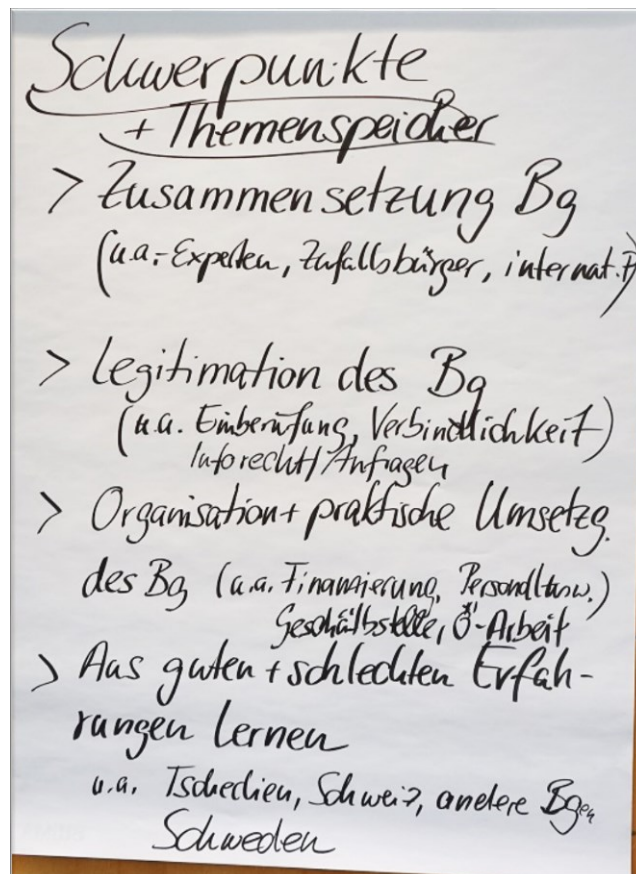 Schwerpunkte
+ Themenspeicher
> Zusammensetzung Bg
(u.a. Experten, Zufallsbürger, internat.
> Legitimation des Bg
(u.a. Einberufung, Verbindlichkeit)
Inforecht/Anfragen
> Organisation + praktische Umsetzg.
des Bg (u.a. Finanzierung, Personal usw.)
Geschäftsstelle, Ö-Arbeit
> Aus guten + schlechten Erfah-
rungen lernen
u.a. Tschechien, Schweiz, andere Bgen
Schweden